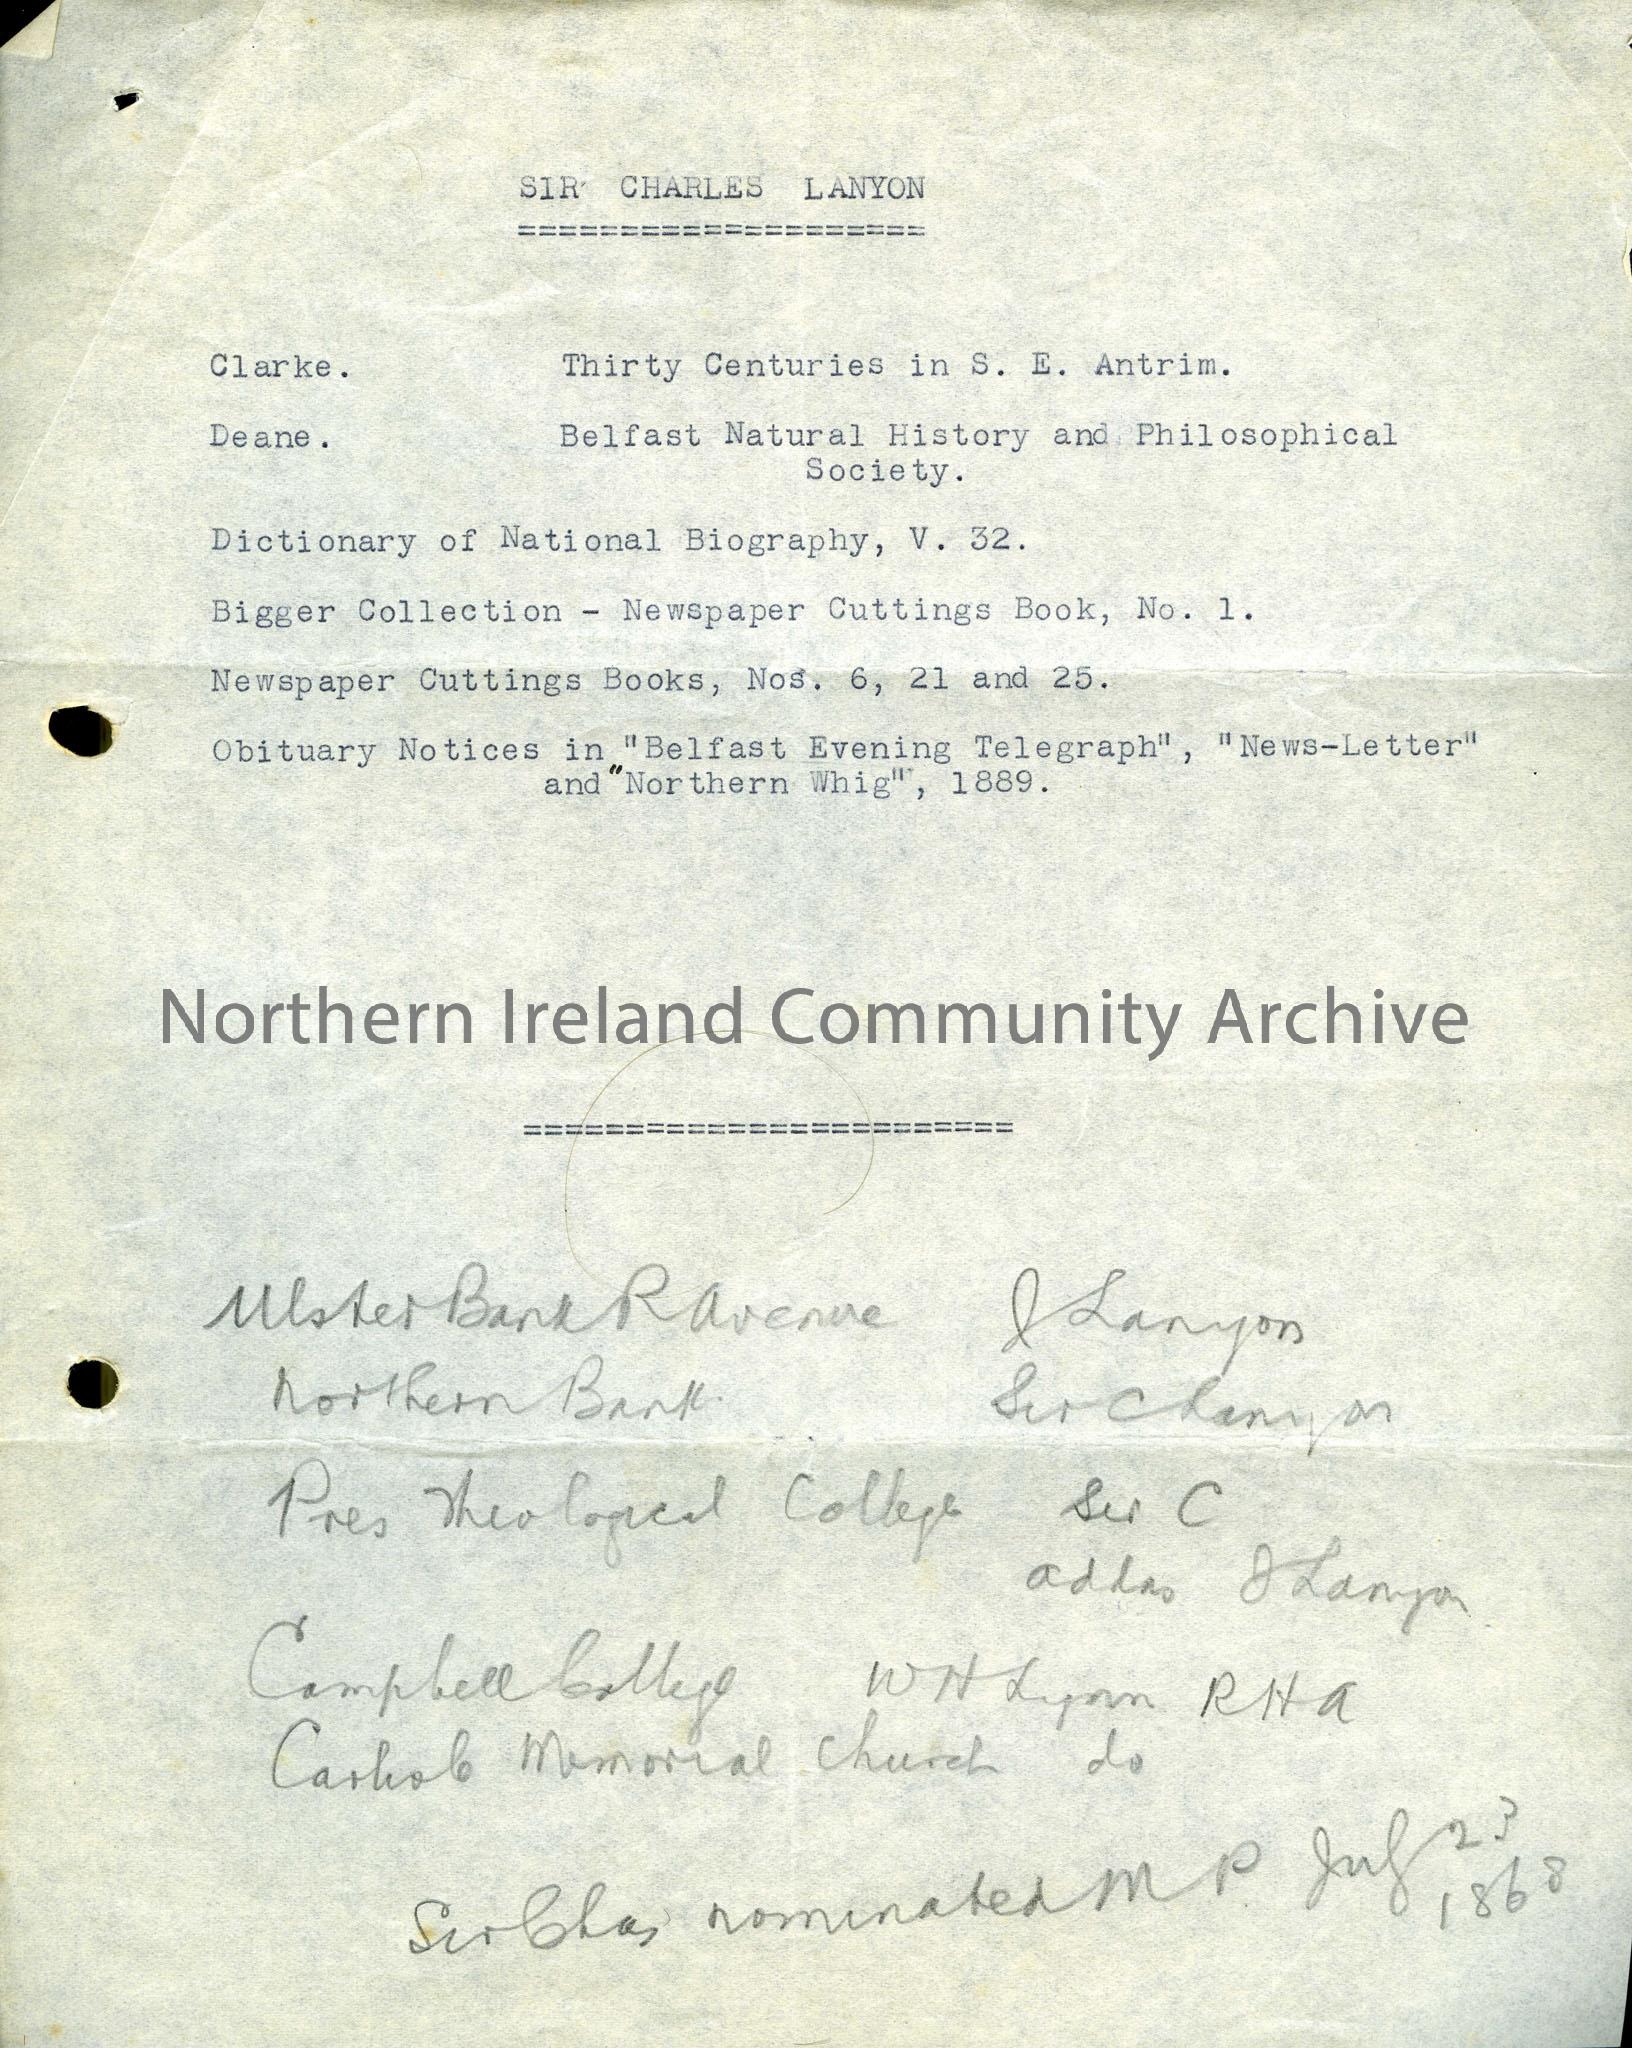 SIR CHARLES LANYON
====================
Clarke. Thirty Centuries in S. E. Antrim.
Deane. Belfast Natural History and Philosophical
Society.
Dictionary of National Biography, V. 32.
Bigger Collection - Newspaper Cuttings Book, No. 1.
Newspaper Cuttings Books, Nos. 6, 21 and 25.
Obituary Notices in "Belfast Evening Telegraph", "News-Letter"
and "Northern Whig", 1889.
Northern Ireland Community Archive
========================
Ulster Bank R Avenue J Lanyon
Northern Bank. Sir C Lanyon
Pres Theological College Sir C
J Lanyon
Campbell College W H Lynn R H A
Memorial Church do
Sir Chas nominated M P. July 23
1868